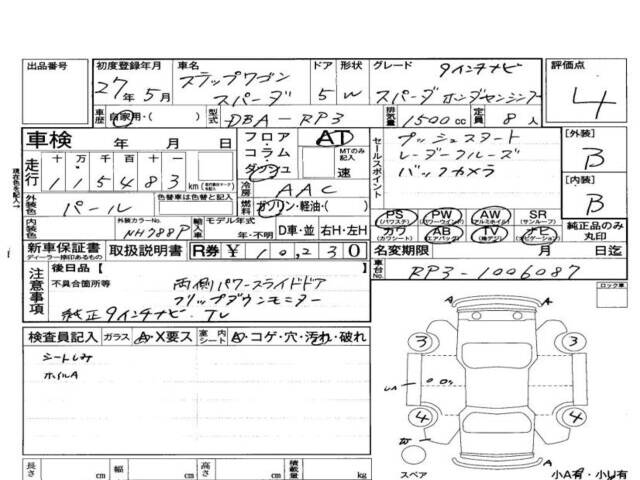 出品番号 初度登録年月 車名 ドア 形状 グレード 9インチナビ 評価点
27年5月 ステップワゴン スパーダ 5 W スパーダ ホンダセンシング 4
車歴 自家用・( ) 型式 DBA-RP3 排気量 1500cc 定員 8人
車検 年 月 日 フロア・コラム・ダッシュ AT MTのみ記入 速 セールスポイント プッシュスタート [外装] B
走行 十 万 千 百 十 一 レーダークルーズ
115483 km バックカメラ [内装] B
現在色を記入→ 外装色 パール 色替車は色替と記入 冷房 AAC
燃料 ガソリン・軽油・( ) PS (パワステ) PW (パワーウインド) AW (アルミホイル) SR (サンルーフ) 純正品のみ丸印
内装色 外装カラーNo. NH788P 輸入車 モデル年式 年・不明 D車・並 右H・左H カワ (カワシート) AB (エアバッグ) TV ナビ (ナビゲーション)
新車保証書 ディーラー捺印あるもの 取扱説明書 R券 ¥ 10,230 名変期限 月 日迄
注意事項 後日品 [ ] 車台No. RP3-1006087
不具合箇所等 両側パワースライドドア ロック車
フリップダウンモニター
純正9インチナビ TV
検査員記入 ガラス A・X要ス 室内シート A・コゲ・穴・汚れ・破れ
シートしみ
ホイルA
A
3 3
UA
4 4
W
A
スペア 小A有・小U有
長さ cm 幅 cm 高さ cm 積載量 kg